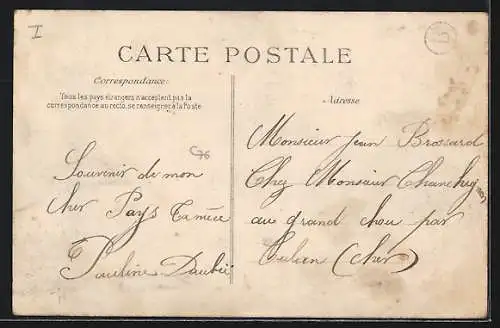 I
CARTE POSTALE
Correspondance
Tous les pays étrangers n'acceptent pas la
correspondance au recto, se renseigner à la Poste
Adresse
C76
Souvenir de mon
cher Pays
Pauline
Monsieur Jean Brossard
Chez Monsieur
au grand chou par
Culan (cher)